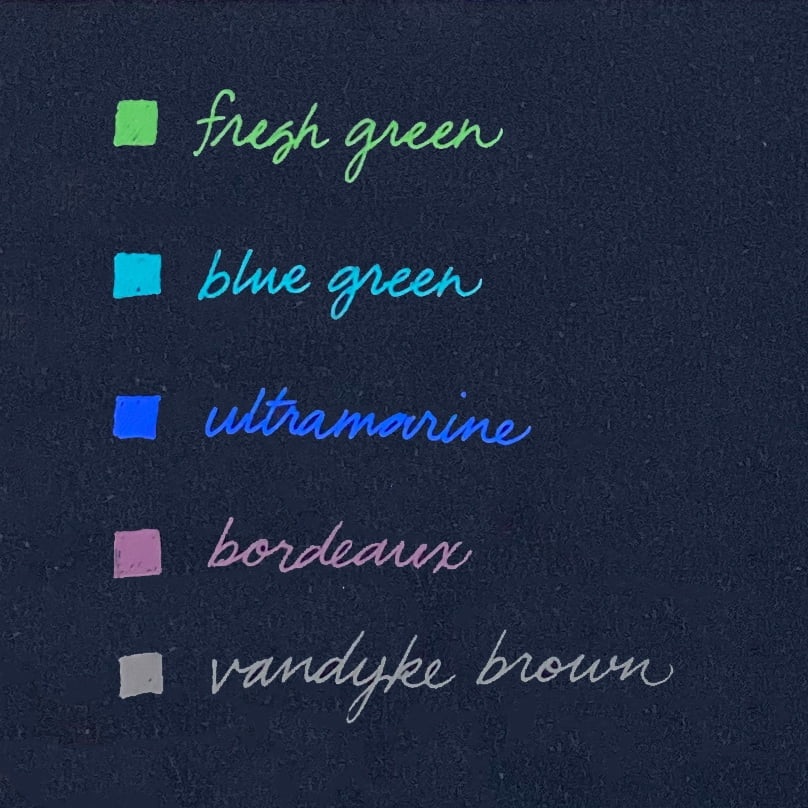 fresh green
blue green
ultramarine
bordeaux
vandyke brown